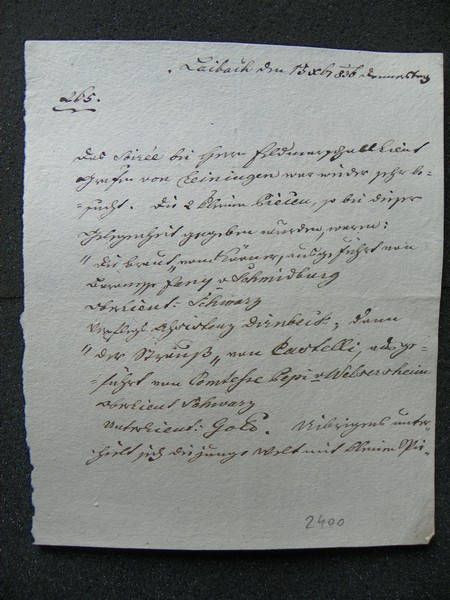 Laibach den 15 xb 836 Donnerstag
265.
Das Soirée bei Herrn Feldmarschall Lieut
Grafen von Leiningen war wieder sehr be-
-sucht. Die 2 kleinen Piecen, so bei dieser
Gelegenheit gegeben wurden, waren:
"die Braut" von Körner, ausgeführt von
Baronesse Feny v Schmidburg
Oberlieut: Schwarz
Verpflegs Dirnbeck, dann
"der Strauß" von Castelli, ausge-
-führt von Comtesse Pepi v Welsersheim
Oberlieut Schwarz
Unterlieut: Gold. Uibrigens unter-
-hielt sich die junge Welt mit kleinen
2400